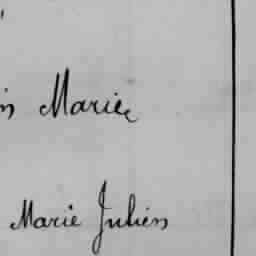 Marie
Marie Julien